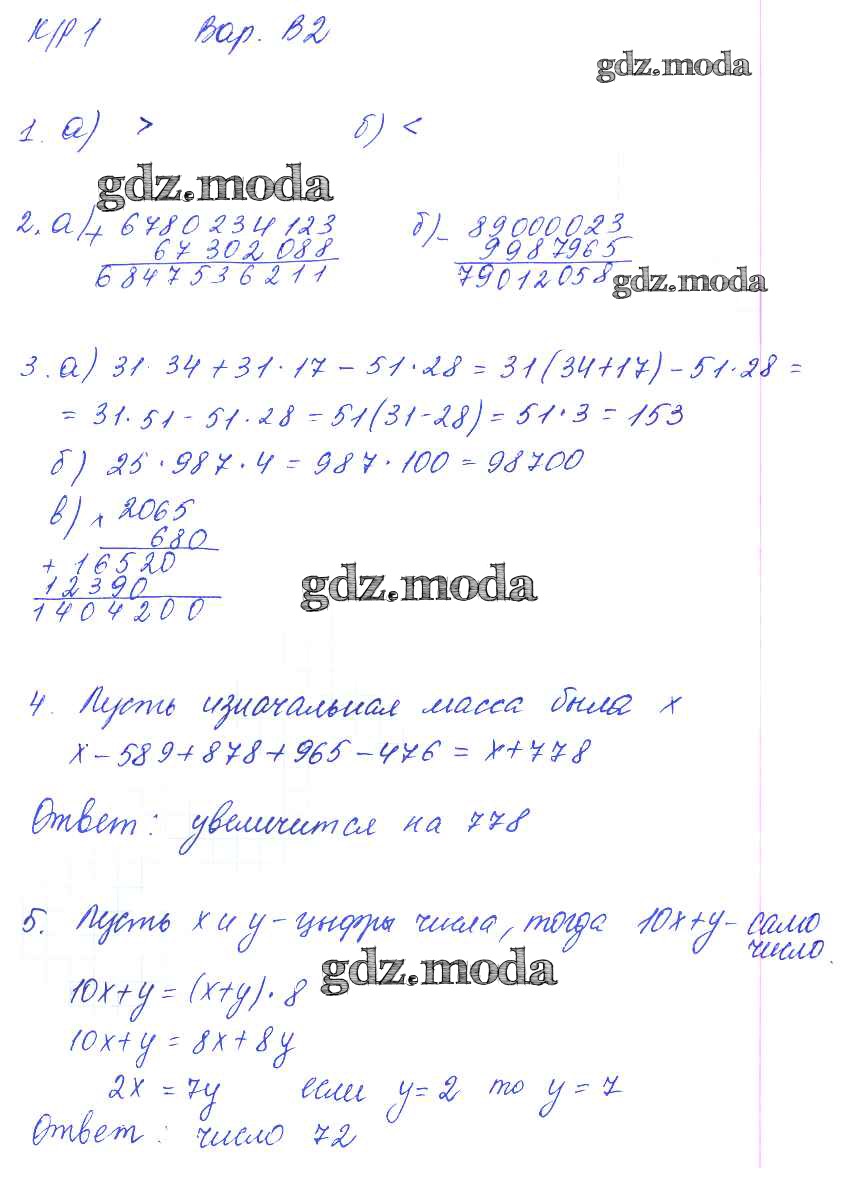 К/Р 1 Вар. В2
gdz.moda
1. а) > б) <
gdz.moda
2. а) + 6780234123 б) - 89000023
67302088 9987965
6847536211 79012058
gdz.moda
3. а) 31·34 + 31·17 - 51·28 = 31(34+17) - 51·28 =
= 31·51 - 51·28 = 51(31-28) = 51·3 = 153
б) 25·987·4 = 987·100 = 98700
в) x 2065
680
+ 16520
12390
1404200
gdz.moda
4. Пусть изначальная масса была x
x - 589 + 878 + 965 - 476 = x + 778
Ответ: увеличится на 778
5. Пусть x и y - цыфры числа, тогда 10x+y - само
число.
gdz.moda
10x+y = (x+y)·8
10x+y = 8x+8y
2x = 7y если y=2 то y=7
Ответ: число 72